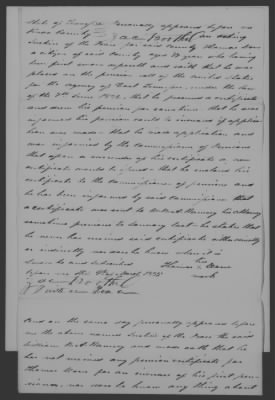 State of Tennessee Personally appeared before me
Knox County
Justice of the Peace for said County Thomas
a citizen of said County aged years who being
first sworn deposeth and saith that he was
placed on the pension roll of the United States
for the agency of East Tennessee under the law
of the 7th June 1832, that he procured a certificate
and drew his pension for sometime that he was
informed his pension could be increased if applica-
tion was made that he made application and
was informed by the Commissioner of Pensions
that upon a surrender of his certificate a new
certificate would be that he enclosed his
certificate to the Commissioner of pensions and
he has been informed by said Commissioner that
a certificate was sent to Wm B A Ramsey his attorney
sometime previous to January last he states that
he never has received said certificate either directly
or indirectly nor does he know where it is
Sworn to and subscribed his
before me this Thomas
mark
Justice
And on the same day personally appeared before
me the above named Justice of the Peace the said
William B A Ramsey and made oath that he
has not received any pension certificate for
Thomas for an increase of his first pen-
sion, nor does he know any thing about